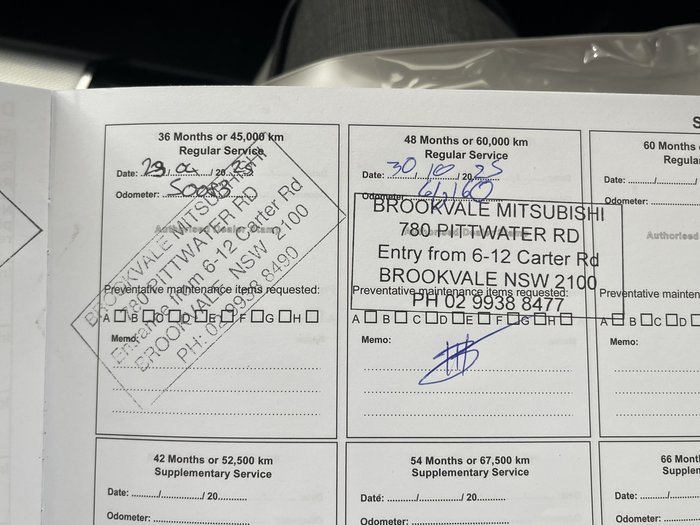 S
36 Months or 45,000 km
Regular Service
Date: 
Odometer:
BROOKVALE MITSUBISHI
780 PITTWATER RD
Entrance from 6-12 Carter Rd
BROOKVALE NSW 2100
PH: 02 9938 8490
Preventative maintenance items requested:
A B C D E F G H
Memo:
48 Months or 60,000 km
Regular Service
Date: 30/10/2025
Odometer:
BROOKVALE MITSUBISHI
780 PITTWATER RD
Entry from 6-12 Carter Rd
BROOKVALE NSW 2100
PH 02 9938 8477
Preventative maintenance items requested:
A B C D E F G H
Memo:
60 Months
Regula
Date:
Odometer:
Authorised
Preventative maintenan
A B C D
Memo:
42 Months or 52,500 km
Supplementary Service
Date: ........./........./ 20.........
Odometer:
54 Months or 67,500 km
Supplementary Service
Date: ........./........./ 20.........
Odometer:
66 Mont
Supplem
Date:
Odometer: